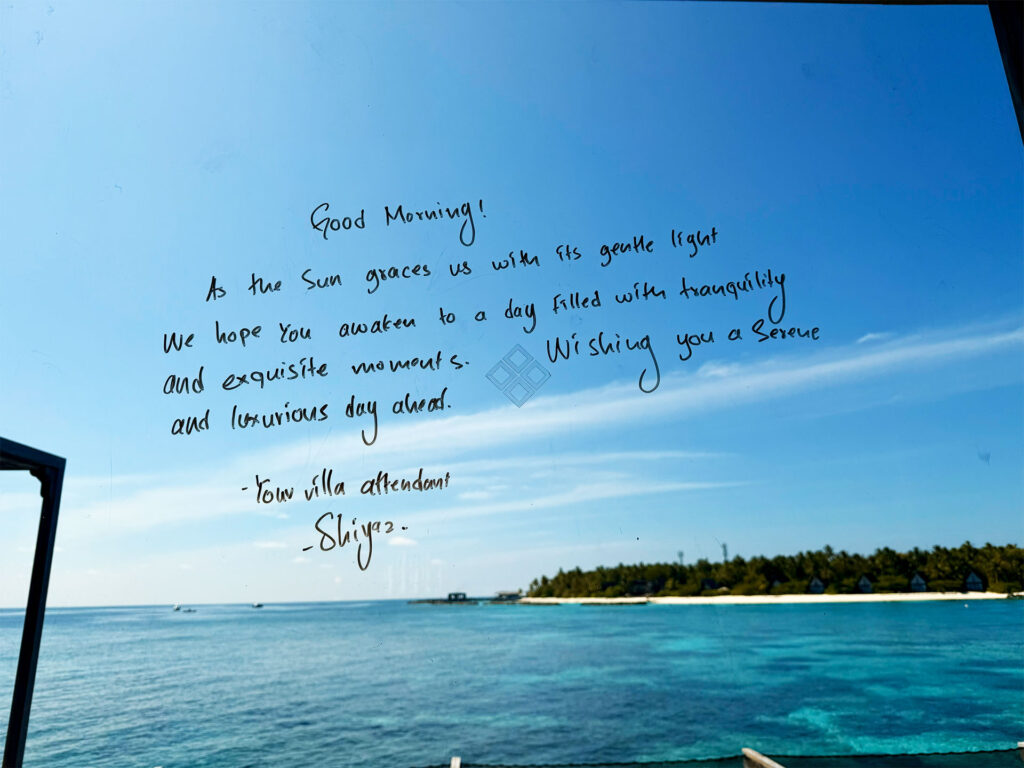 Good Morning!
As the Sun graces us with its gentle light
We hope You awaken to a day filled with tranquility
and exquisite moments. Wishing you a Serene
and luxurious day ahead.
-Your villa attendant
-Shiyaz.